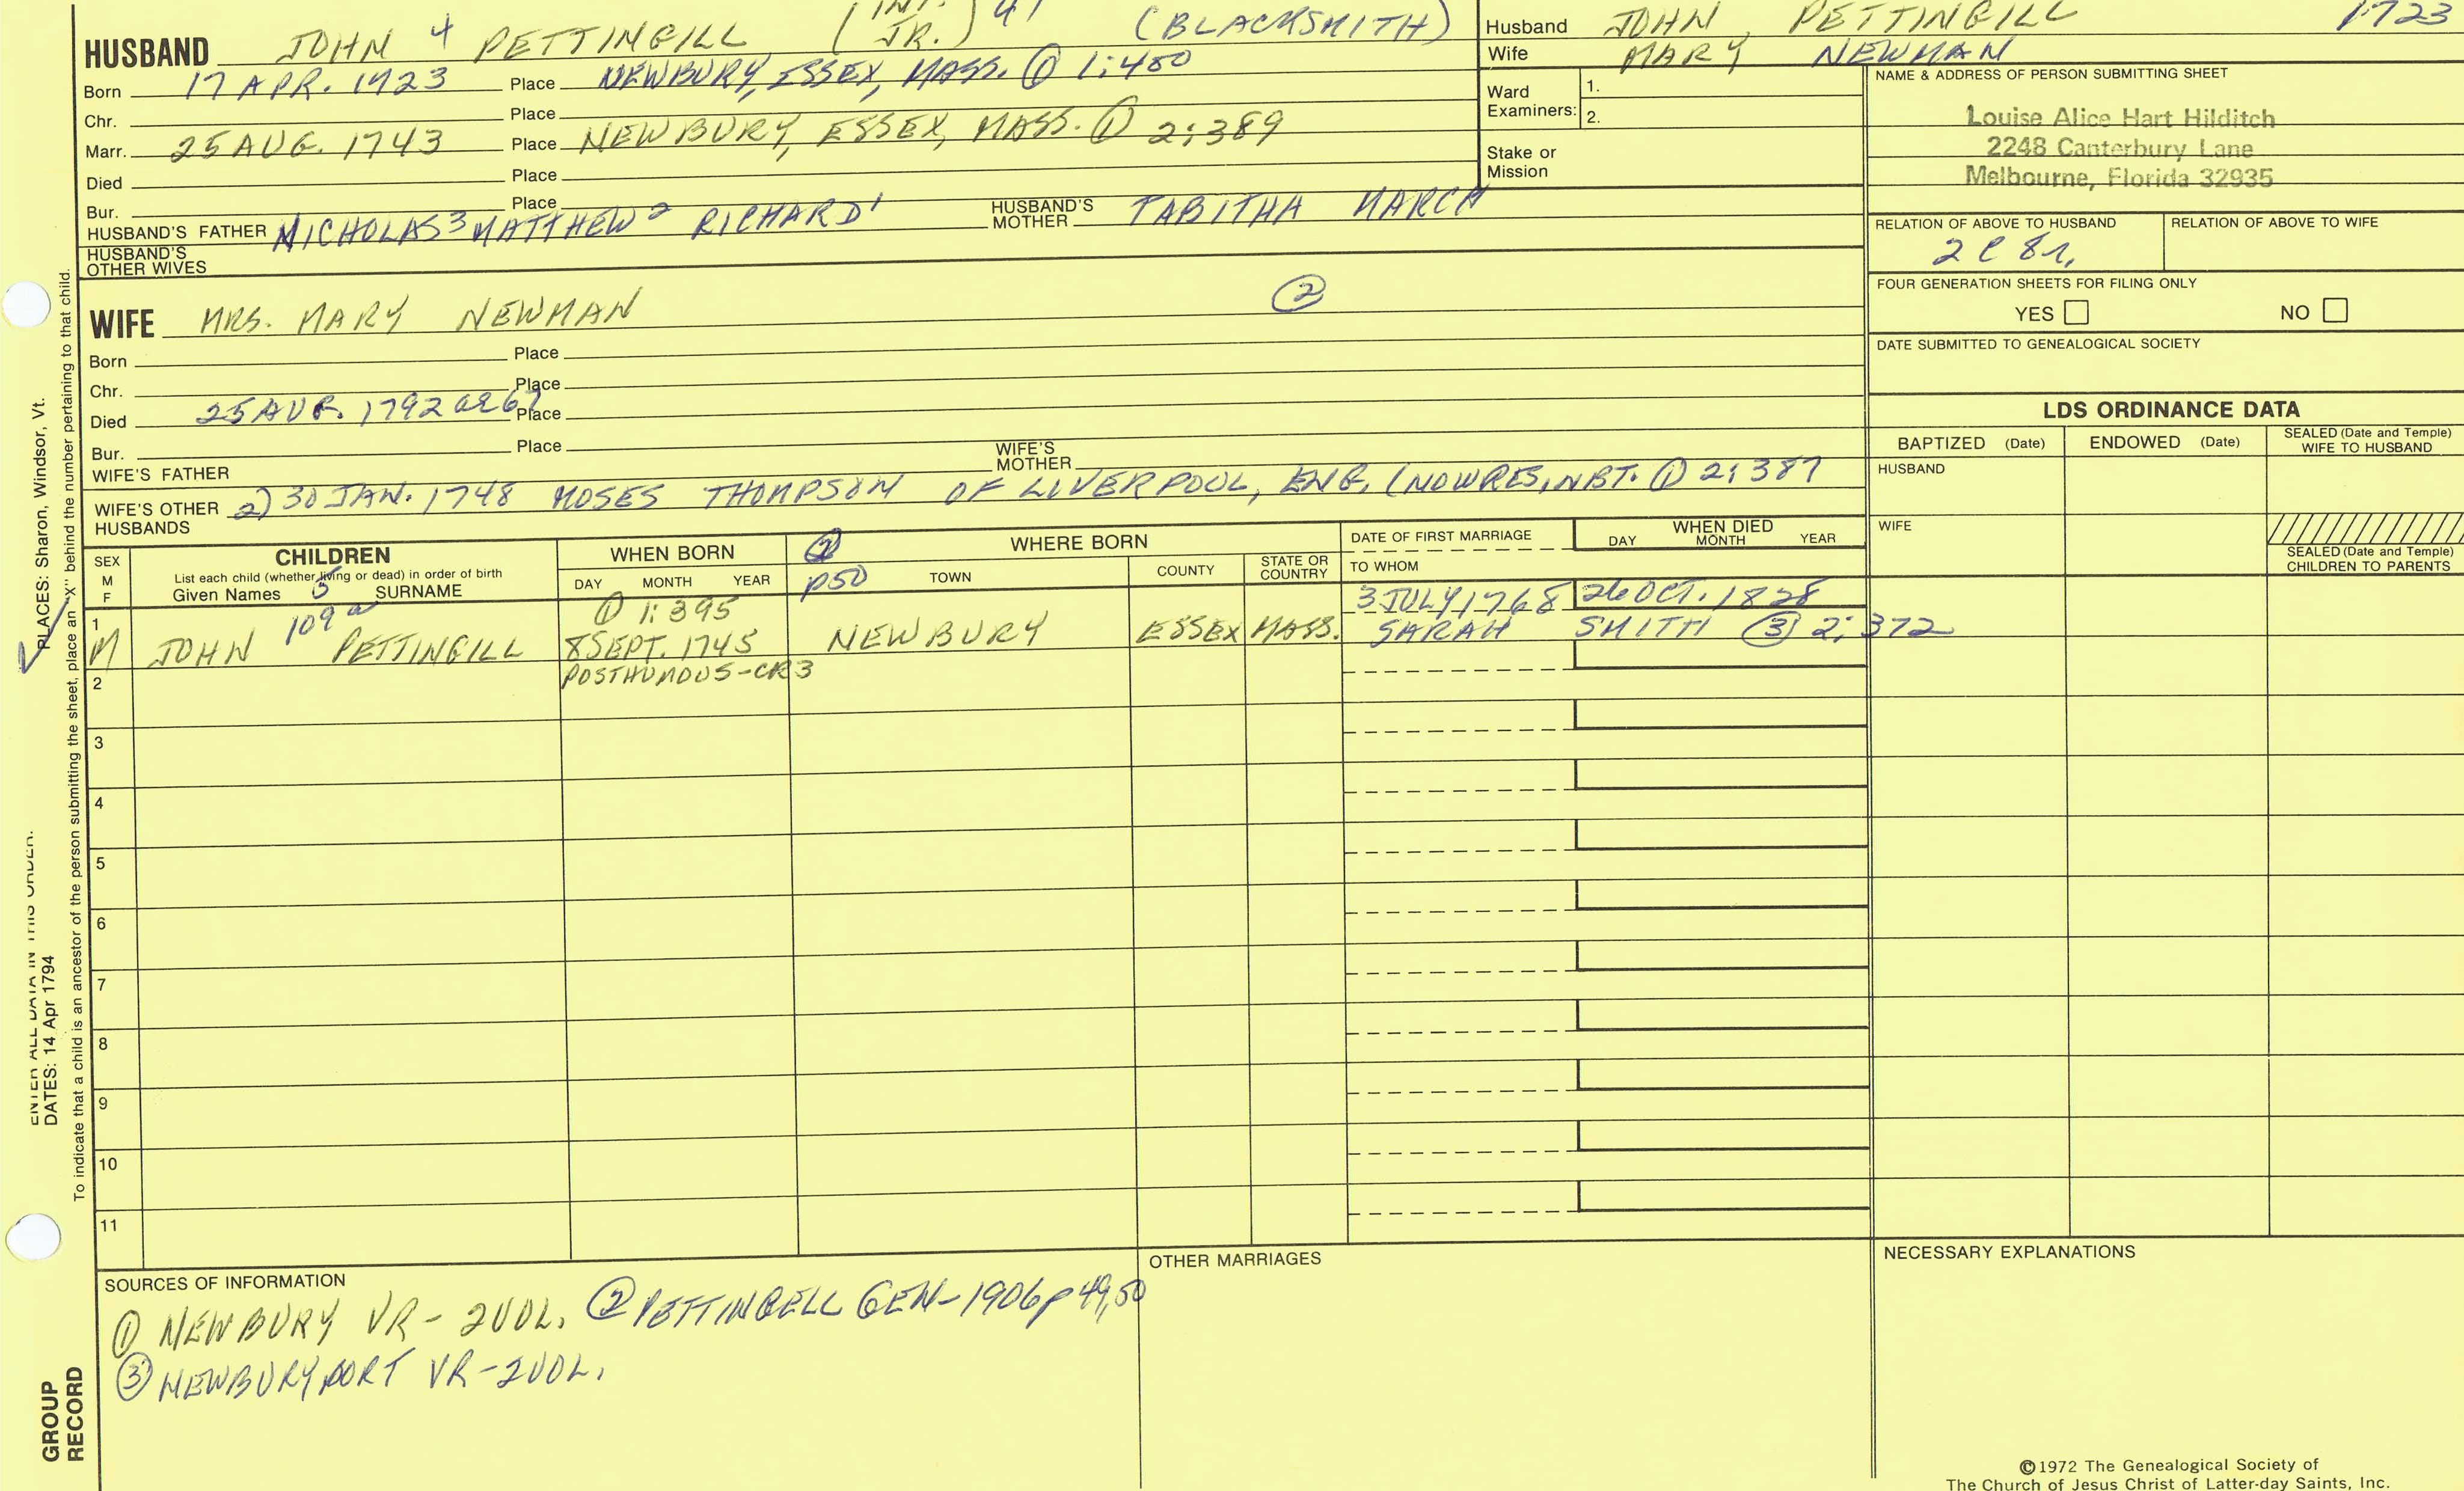 HUSBAND JOHN 4 PETTINGILL (INT. JR.) 41 (BLACKSMITH)
Born 17 APR. 1723 Place NEWBURY, ESSEX, MASS. ① 1:400
Chr. Place
Marr. 25 AUG. 1743 Place NEWBURY, ESSEX, MASS. ① 2:389
Died Place
Bur. Place
HUSBAND'S FATHER NICHOLAS3 MATTHEW2 RICHARD1 HUSBAND'S MOTHER TABITHA MARCH
HUSBAND'S OTHER WIVES
Husband JOHN PETTINGILL 1723
Wife MARY NEWMAN
Ward Examiners: 1.
2.
Stake or Mission
NAME & ADDRESS OF PERSON SUBMITTING SHEET
Louise Alice Hart Hilditch
2248 Canterbury Lane
Melbourne, Florida 32935
RELATION OF ABOVE TO HUSBAND RELATION OF ABOVE TO WIFE
2 C 8r.
FOUR GENERATION SHEETS FOR FILING ONLY
YES NO
DATE SUBMITTED TO GENEALOGICAL SOCIETY
WIFE MRS. MARY NEWMAN ②
Born Place
Chr. Place
Died 25 AUG. 1792 Place
Bur. Place
WIFE'S FATHER WIFE'S MOTHER
WIFE'S OTHER HUSBANDS 2) 30 JAN. 1748 MOSES THOMPSON OF LIVERPOOL, ENG. (NOW RES, NBT. ① 2:387
LDS ORDINANCE DATA
BAPTIZED (Date) ENDOWED (Date) SEALED (Date and Temple) WIFE TO HUSBAND
HUSBAND
WIFE
SEALED (Date and Temple) CHILDREN TO PARENTS
SEX M F
CHILDREN
List each child (whether living or dead) in order of birth
Given Names 5 SURNAME
WHEN BORN
DAY MONTH YEAR
② p50
WHERE BORN
TOWN COUNTY STATE OR COUNTRY
DATE OF FIRST MARRIAGE
TO WHOM
WHEN DIED
DAY MONTH YEAR
① 1:395 3 JULY 1768 26 OCT. 1828
1 M JOHN 109a PETTINGILL 8 SEPT. 1745 NEWBURY ESSEX MASS. SARAH SMITH ③ 2:372
2 POSTHUMOUS-CR3
3
4
5
6
7
8
9
10
11
SOURCES OF INFORMATION
① NEWBURY VR - 2VOL. ② PETTINGELL GEN - 1906 p 49,50
③ NEWBURYPORT VR - 2VOL.
OTHER MARRIAGES
NECESSARY EXPLANATIONS
©1972 The Genealogical Society of
The Church of Jesus Christ of Latter-day Saints, Inc.
ENTER ALL DATA IN THIS ORDER:
DATES: 14 Apr 1794
PLACES: Sharon, Windsor, Vt.
To indicate that a child is an ancestor of the person submitting the sheet, place an "X" behind the number pertaining to that child.
GROUP
RECORD